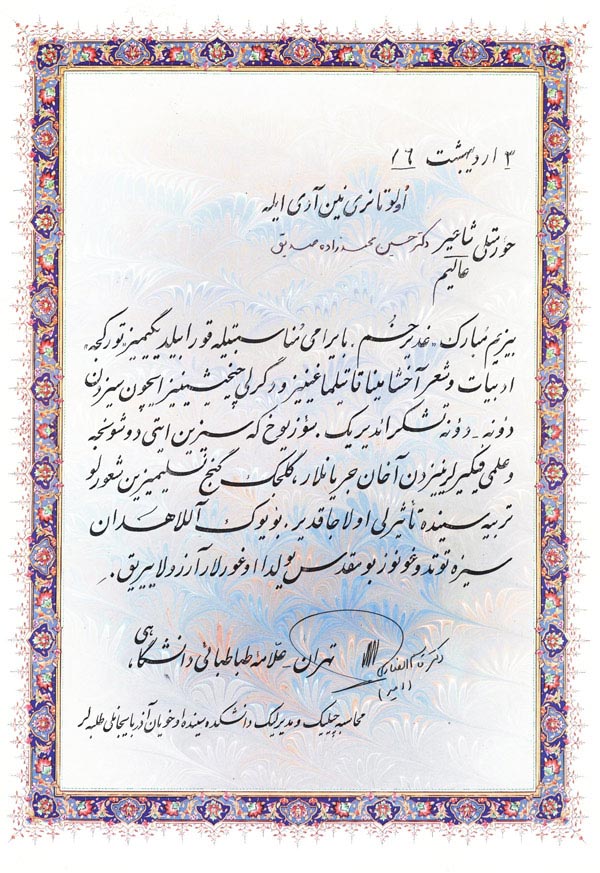 ۳ اردیبهشت ۱۶
اولو تانری نین آدی ایله
حورمتلی شاعیر دکتر حسین محمدزاده صدیق
عالیم
بیزیم مُبارک «غدیر خُم» بایرامی مُناسبتیله قورا بیلدیگیمیز تورکجه
ادبیات و شعر آخشامینا قاتیلماغینیز و دگرلی چیخیشینیز ایچون سیزدن
دؤنه - دؤنه تشکر ائدیریک. سؤز یوخ که سیزین ایتی دوشونجه
و علمی فیکیرلرینیزدن آخان جریانلار، گلجک گنج نسلیمیزین شعورلو
تربیه سینده تأثیرلی اولاجاقدیر. بویوک آللاهدان
سیزه توتدوغونوز بو مقدس یولدا اوغورلار آرزولاییریق.
تهران - علّامه طباطبائی دانشگاهی،
دکتر
(امیر)
محاسبه چیلیک و مدیرلیک دانشکده سینده اوخویان آذربایجانلی طلبه لر